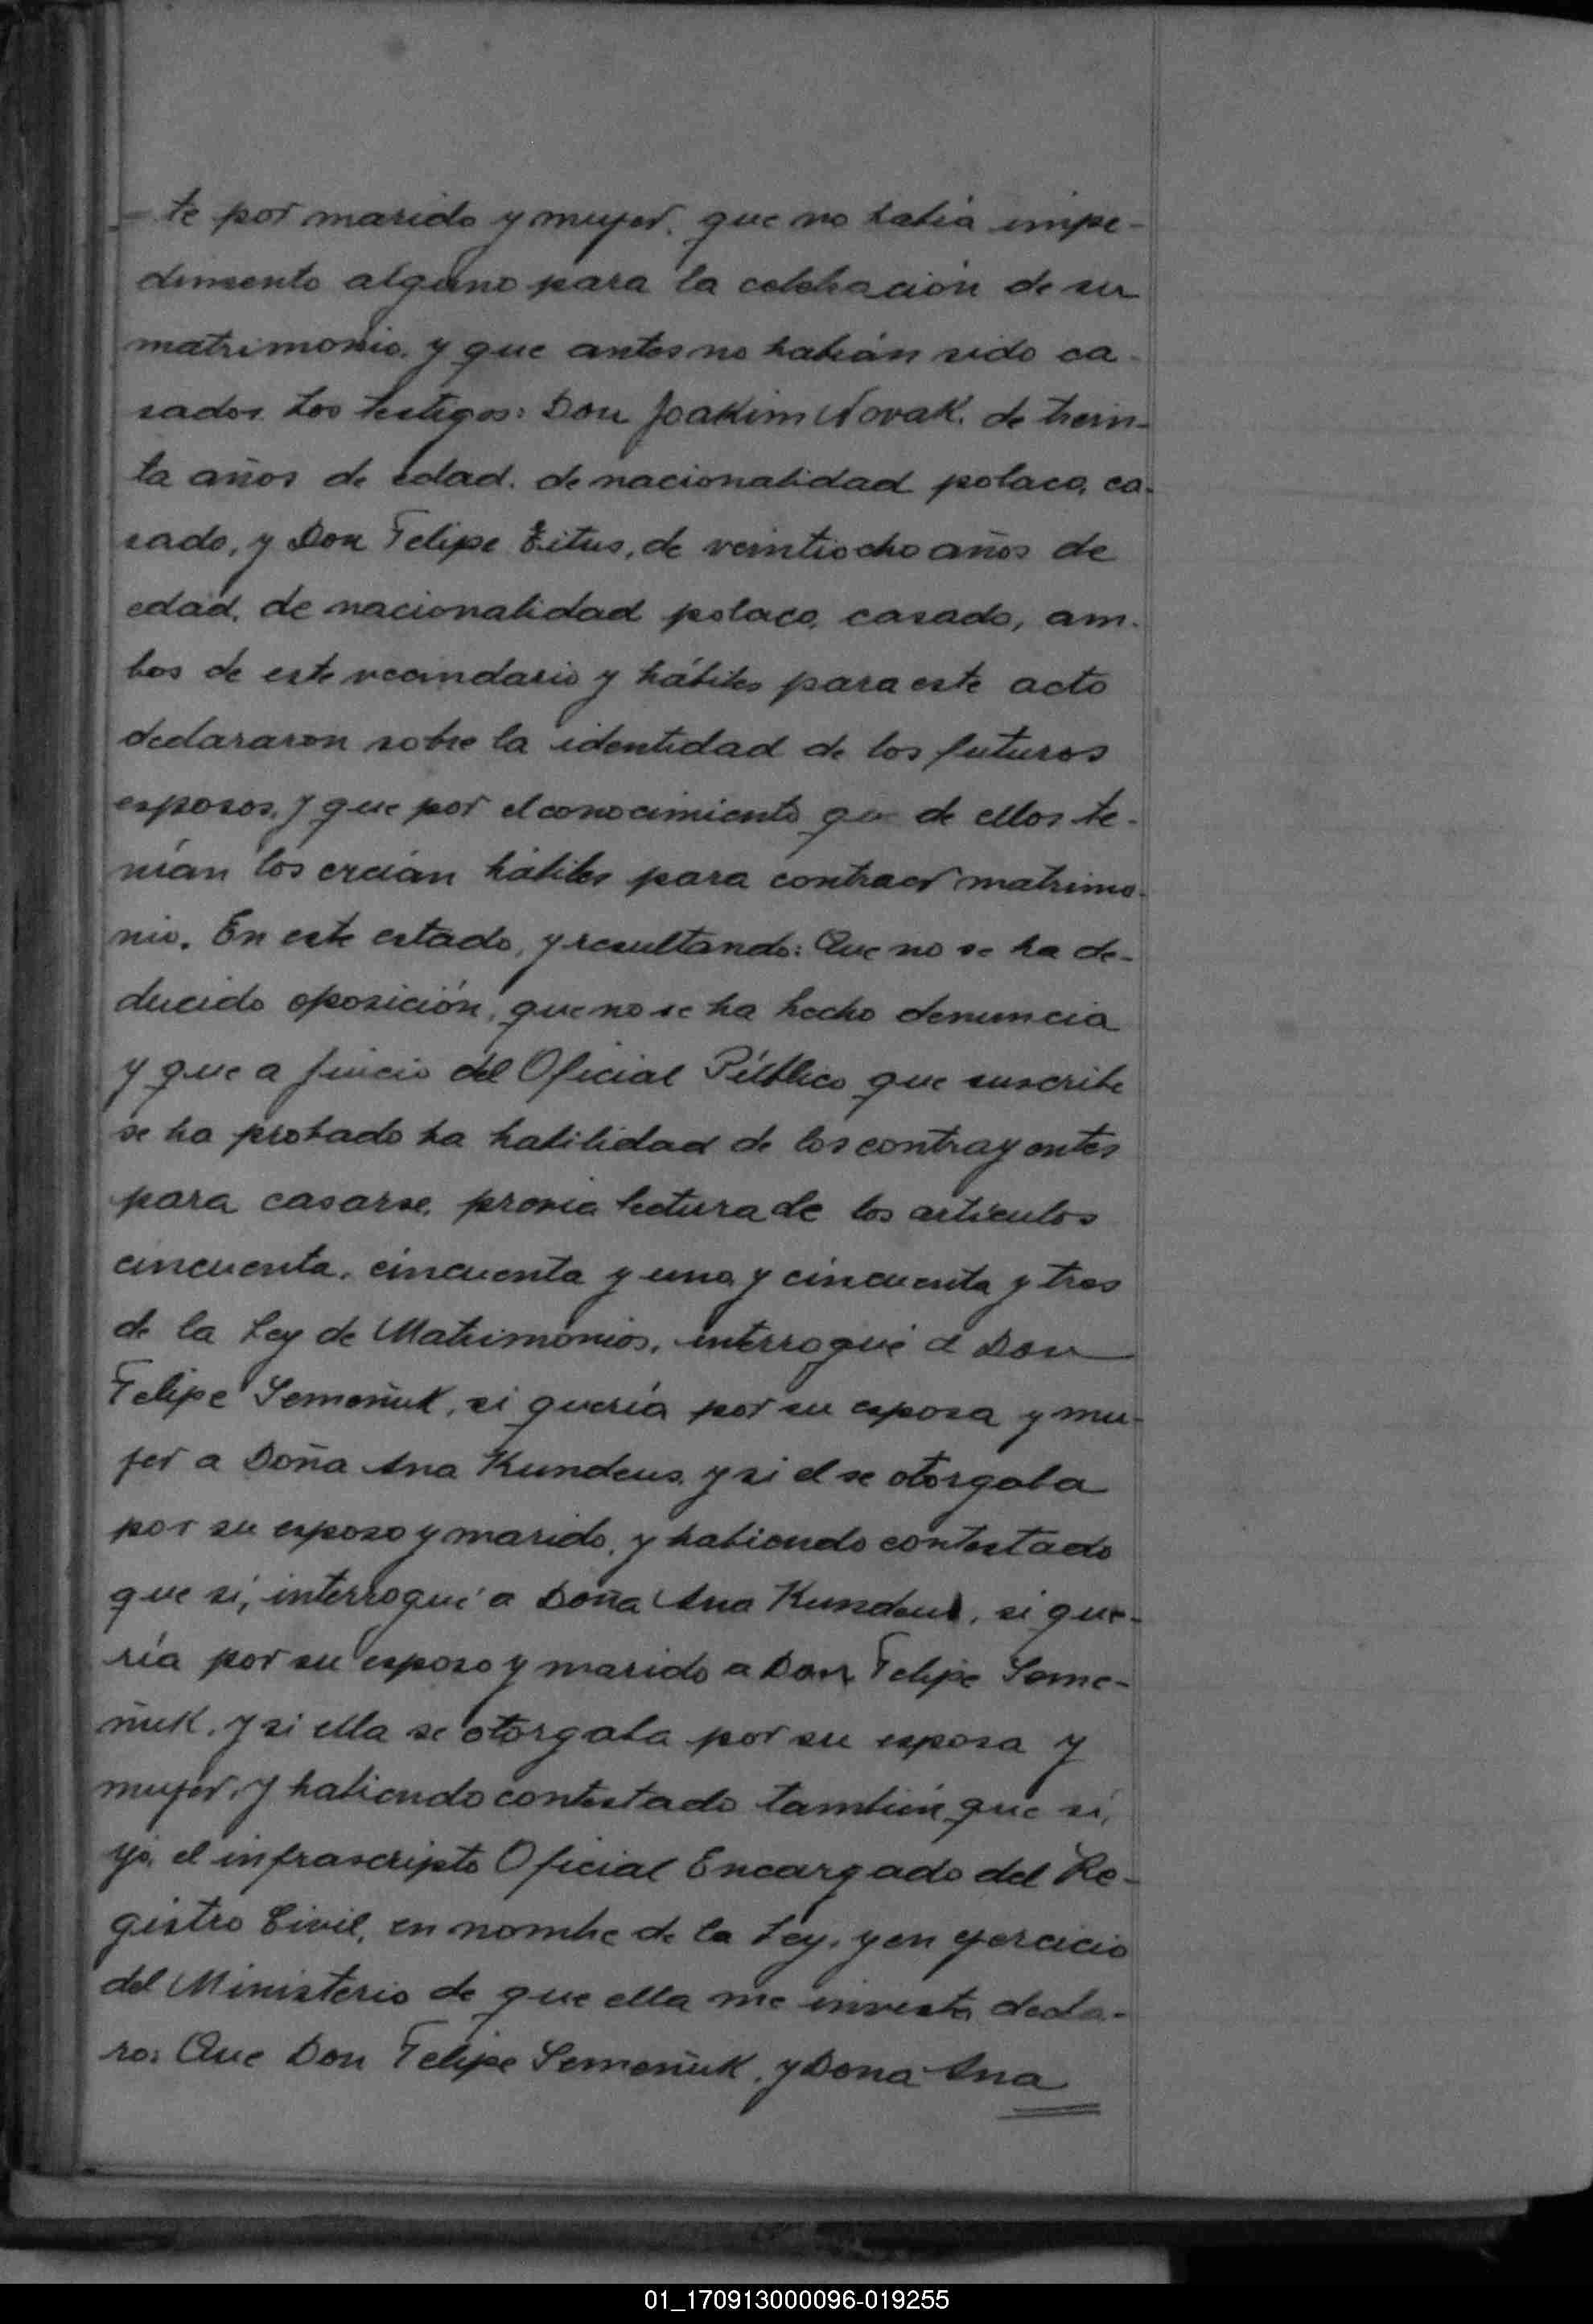 te por marido y mujer, que no había impe-
dimento alguno para la celebración de su
matrimonio, y que antes no habían sido ca-
sados. Los testigos: Don Joakim Novak, de trein-
ta años de edad, de nacionalidad polaco, ca-
sado, y Don Felipe Titus, de veintiocho años de
edad, de nacionalidad polaco, casado, am-
bos de este vecindario y hábiles para este acto
declararon sobre la identidad de los futuros
esposos, y que por el conocimiento que de ellos te-
nían los creían hábiles para contraer matrimo-
nio. En este estado, y resultando: Que no se ha de-
ducido oposición, que no se ha hecho denuncia
y que a juicio del Oficial Público que suscribe
se ha probado ha habilidad de los contrayentes
para casarse, previa lectura de los artículos
cincuenta, cincuenta y uno, y cincuenta y tres
de la Ley de Matrimonios, interrogué a Don
Felipe Semeñuk, si quería por su esposa y mu-
jer a Doña Ana Kundeus, y si el se otorgaba
por su esposo y marido, y habiendo contestado
que sí, interrogué a Doña Ana Kundeus, si que-
ría por su esposo y marido a Don Felipe Seme-
ñuk, y si ella se otorgaba por su esposa y
mujer, y habiendo contestado también que sí,
yo, el infrascripto Oficial Encargado del Re-
gistro Civil, en nombre de la Ley, y en ejercicio
del Ministerio de que ella me inviste, decla-
ro: Que Don Felipe Semeñuk, y Dona Ana
01_170913000096-019255